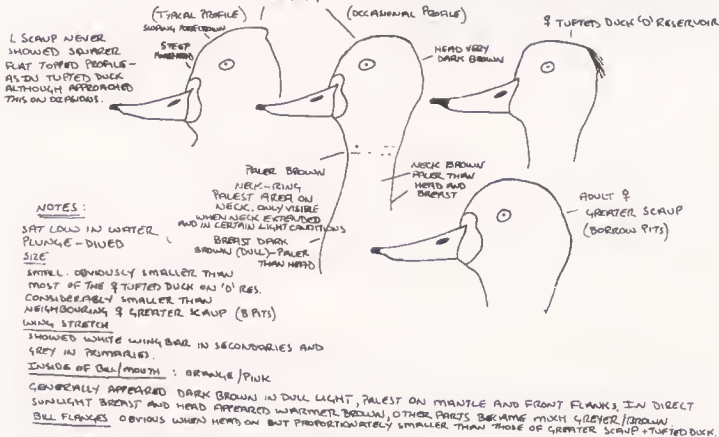 (TYPICAL PROFILE)
SLOPING FORECROWN
STEEP FOREHEAD
(OCCASIONAL PROFILE)
HEAD VERY
DARK BROWN
♀ TUFTED DUCK 'D' RESERVOIR
L SCAUP NEVER
SHOWED SQUARER
FLAT TOPPED PROFILE -
AS IN TUFTED DUCK
ALTHOUGH APPROACHED
THIS ON OCASIONS.
PALER BROWN
NECK-RING
PALEST AREA ON
NECK, ONLY VISIBLE
WHEN NECK EXTENDED
AND IN CERTAIN LIGHT CONDITIONS
BREAST DARK
BROWN (DULL) - PALER
THAN HEAD
NECK BROWN
PALER THAN
HEAD AND
BREAST
ADULT ♀
GREATER SCAUP
(BORROW PITS)
NOTES:
SAT LOW IN WATER
PLUNGE-DIVED
SIZE
SMALL. OBVIOUSLY SMALLER THAN
MOST OF THE ♀ TUFTED DUCK ON 'D' RES.
CONSIDERABLY SMALLER THAN
NEIGHBOURING ♀ GREATER SCAUP (B PITS)
WING STRETCH
SHOWED WHITE WING BAR IN SECONDARIES AND
GREY IN PRIMARIES.
INSIDE OF BILL/MOUTH : ORANGE/PINK
GENERALLY APPEARED DARK BROWN IN DULL LIGHT, PALEST ON MANTLE AND FRONT FLANKS. IN DIRECT
SUNLIGHT BREAST AND HEAD APPEARED WARMER BROWN, OTHER PARTS BECAME MUCH GREYER/BROWN.
BILL FLANGES OBVIOUS WHEN HEAD ON BUT PROPORTIONATELY SMALLER THAN THOSE OF GREATER SCAUP + TUFTED DUCK.